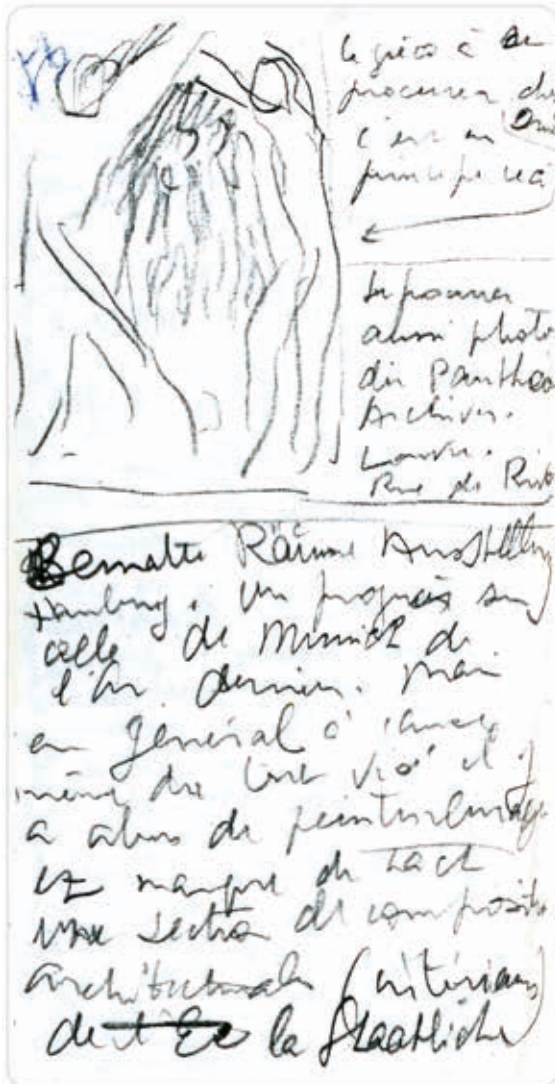 à
procurer du
c'est un
principe
Se procurer
aussi photo
du Pantheo
Archives.
Louvre.
Rue de Rivo
Bemalte Räume Ausstellung
Hamburg. Un progrès sur
celle de Munich de
l'An dernier. Mais
en général à cause
même du but visé il y
a abus de
et manque de tact
Une section de composit
architecturale (intérieurs)
de la Staatliche